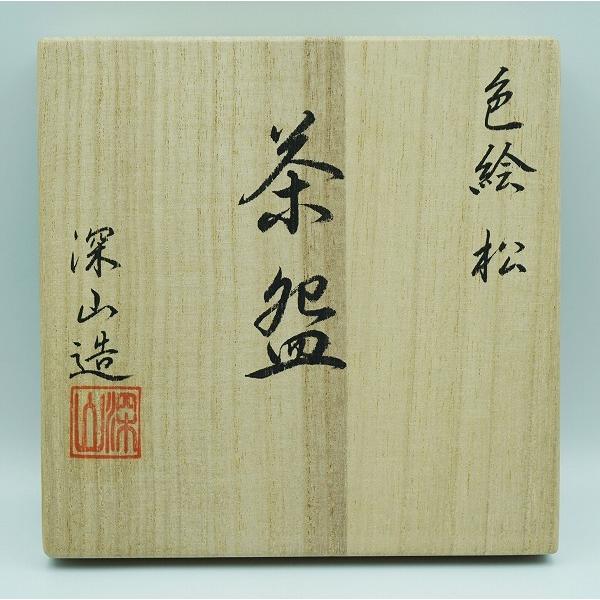 色絵 松
茶盌
深山造
深山